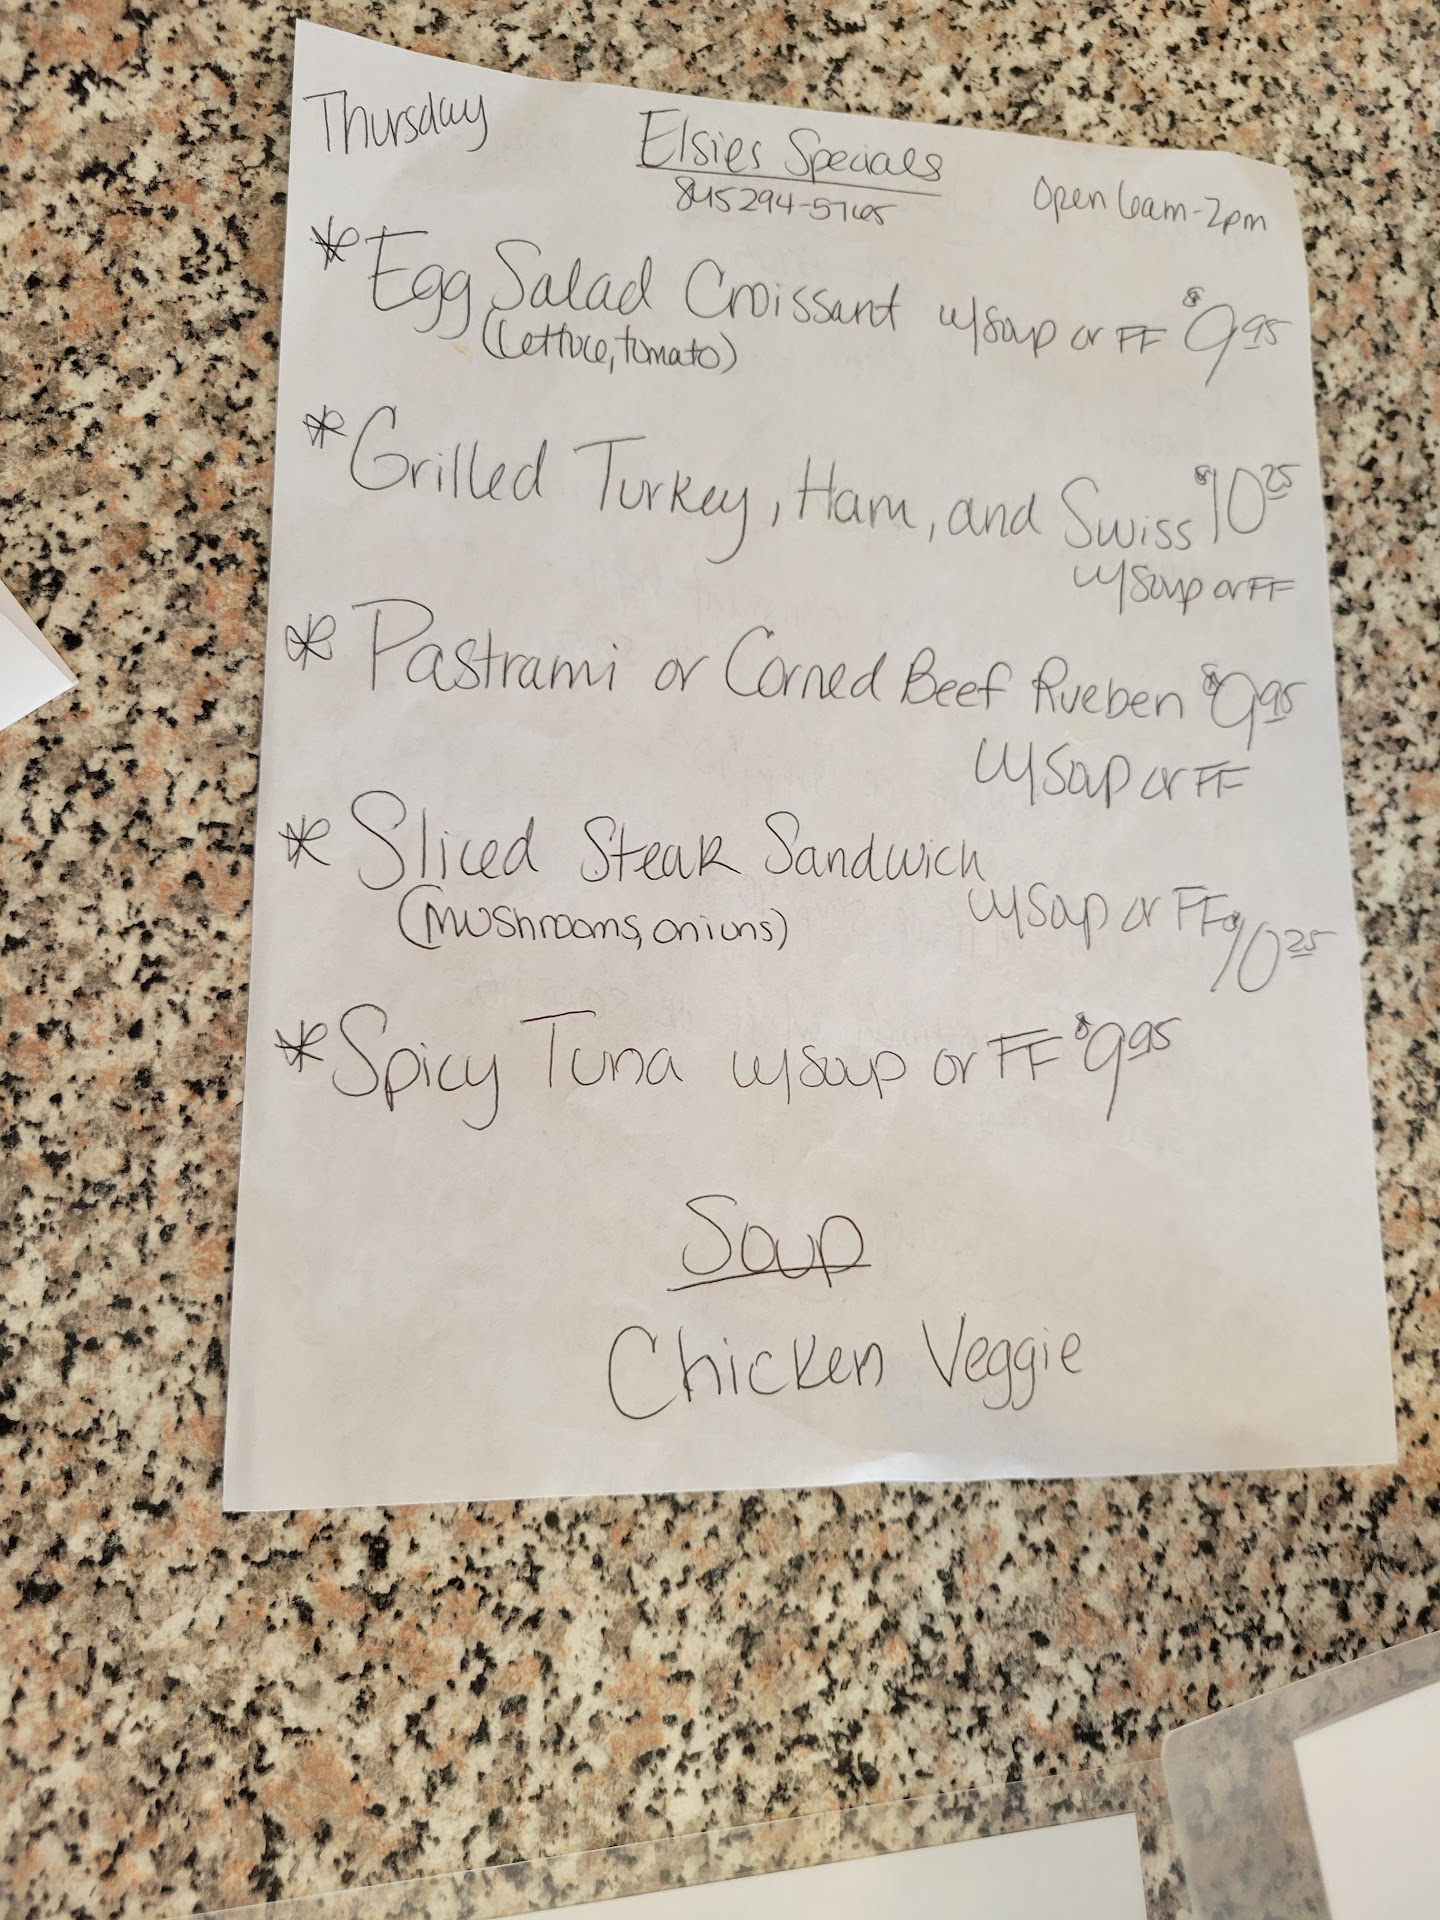 Thursday
Elsies Specials
845 294-5765
Open 6am-2pm
* Egg Salad Croissant w/soup or FF $9.95
(Lettuce, tomato)
* Grilled Turkey, Ham, and Swiss $10.25
w/soup or FF
* Pastrami or Corned Beef Rueben $9.95
w/soup or FF
* Sliced Steak Sandwich
(Mushrooms, onions) w/soup or FF $10.25
* Spicy Tuna w/soup or FF $9.95
Soup
Chicken Veggie